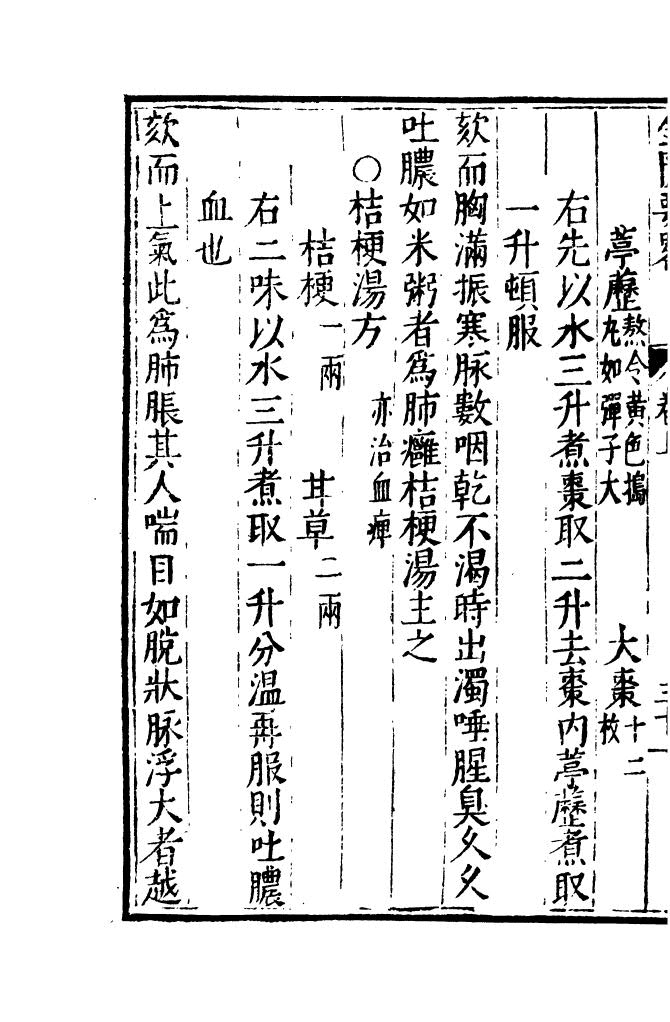 葶藶熬令黃色搗丸如彈子大　大棗十二枚
右先以水三升煮棗取二升去棗內葶藶煮取
一升頓服
欬而胸滿振寒脉數咽乾不渴時出濁唾腥臭久久
吐膿如米粥者為肺癰桔梗湯主之
○桔梗湯方亦治血痺
桔梗一兩　甘草二兩
右二味以水三升煮取一升分温再服則吐膿
血也
欬而上氣此為肺脹其人喘目如脫狀脉浮大者越